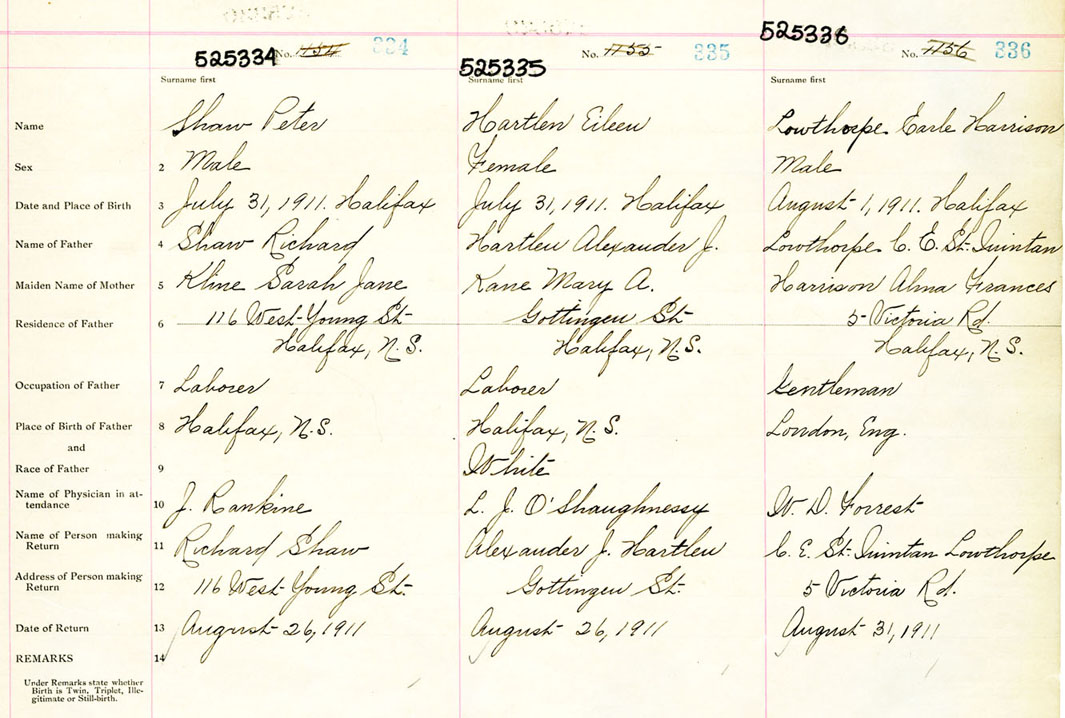 525334 No. 1154 334
525335 No. 1155 335
525336 No. 1156 336
Surname first Surname first Surname first
Name Shaw Peter Hartlen Eileen Lowthorpe Earle Harrison
Sex 2 Male Female Male
Date and Place of Birth 3 July 31, 1911. Halifax July 31, 1911. Halifax August 1, 1911. Halifax
Name of Father 4 Shaw Richard Hartlen Alexander J. Lowthorpe C. E. St. Quintan
Maiden Name of Mother 5 Kline Sarah Jane Kane Mary A. Harrison Alma Frances
Residence of Father 6 116 West Young St. Gottingen St. 5 Victoria Rd.
Halifax, N.S. Halifax, N.S. Halifax, N.S.
Occupation of Father 7 Laborer Laborer Gentleman
Place of Birth of Father 8 Halifax, N.S. Halifax, N.S. London, Eng.
and
Race of Father 9 White
Name of Physician in at-
tendance 10 J. Rankine L. J. O'Shaughnessy W. D. Forrest
Name of Person making
Return 11 Richard Shaw Alexander J. Hartlen C. E. St. Quintan Lowthorpe
Address of Person making
Return 12 116 West Young St. Gottingen St. 5 Victoria Rd.
Date of Return 13 August 26, 1911 August 26, 1911 August 31, 1911
REMARKS 14
Under Remarks state whether
Birth is Twin, Triplet, Ille-
gitimate or Still-birth.